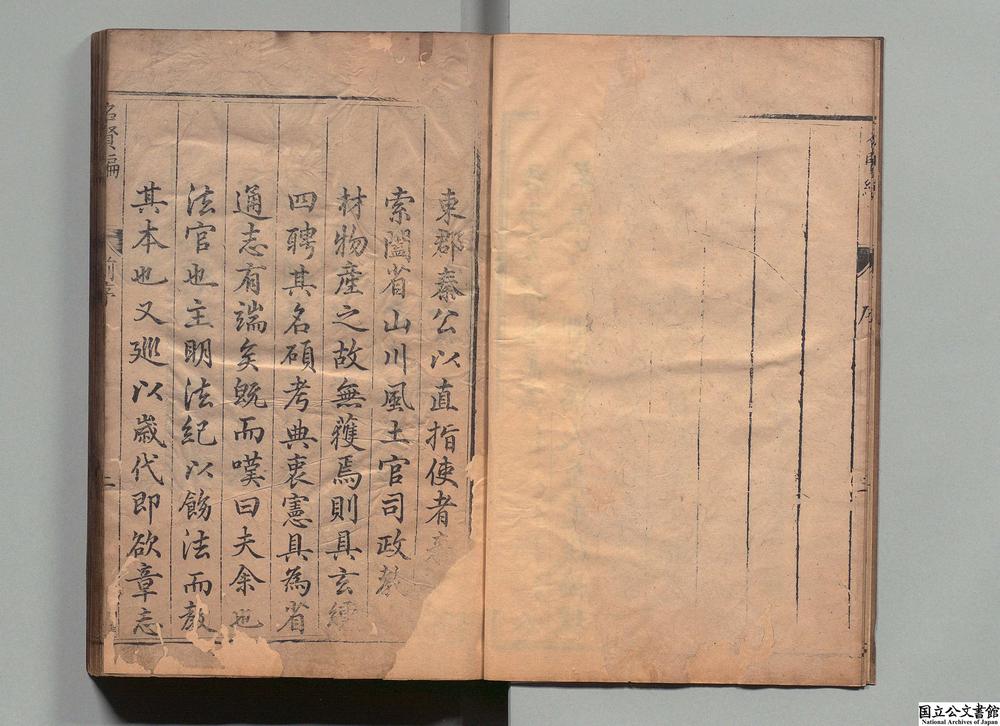 序
東郡秦公以直指使者
索闔省山川風土官司政教
材物產之故無獲焉則具玄纁
四聘其名碩考典衷憲具為省
通志有端矣既而嘆曰夫余也
法官也主明法紀以飭法而敎
其本也又廵以歲代即欲章志
名賢編
前序
二
国立公文書館
National Archives of Japan